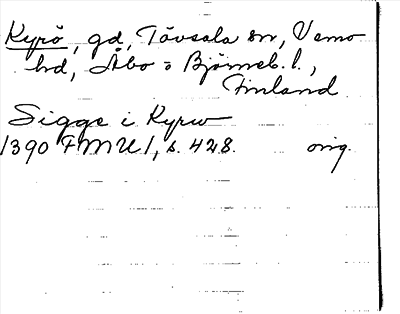 Kyrö, gd, Tövsala sn, Vemo
hd, Åbo o Björneb. l.,
Finland
Sigge i Kyrw
1390 FMU 1, s. 428. orig.